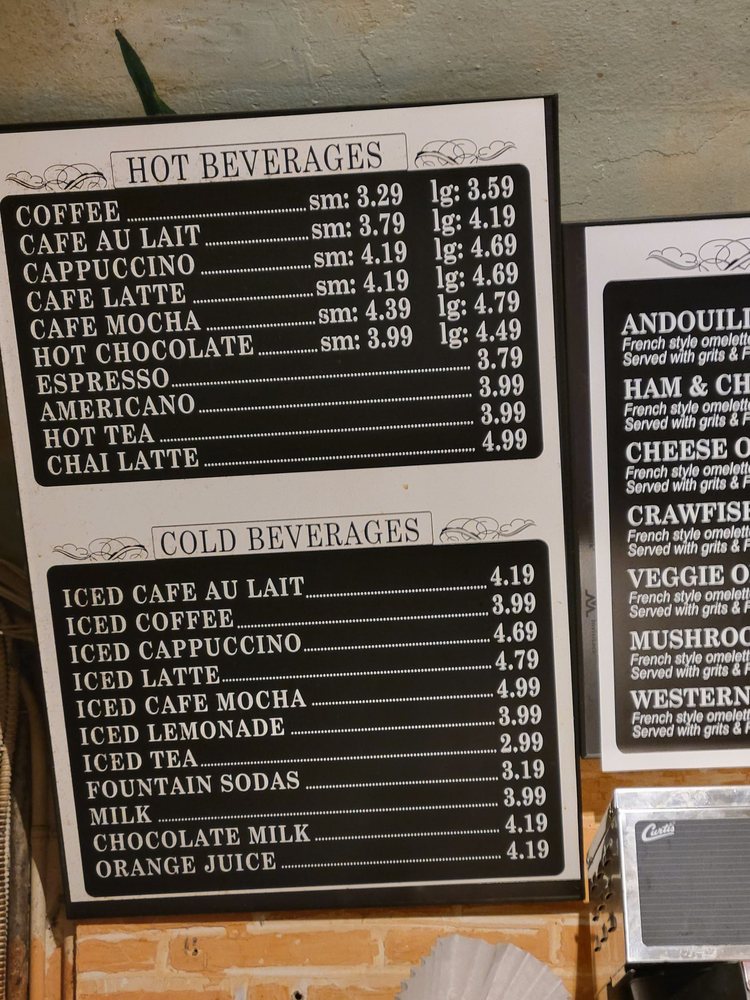 HOT BEVERAGES
COFFEE sm: 3.29 lg: 3.59
CAFE AU LAIT sm: 3.79 lg: 4.19
CAPPUCCINO sm: 4.19 lg: 4.69
CAFE LATTE sm: 4.19 lg: 4.69
CAFE MOCHA sm: 4.39 lg: 4.79
HOT CHOCOLATE sm: 3.99 lg: 4.49
ESPRESSO 3.79
AMERICANO 3.99
HOT TEA 3.99
CHAI LATTE 4.99
COLD BEVERAGES
ICED CAFE AU LAIT 4.19
ICED COFFEE 3.99
ICED CAPPUCCINO 4.69
ICED LATTE 4.79
ICED CAFE MOCHA 4.99
ICED LEMONADE 3.99
ICED TEA 2.99
FOUNTAIN SODAS 3.19
MILK 3.99
CHOCOLATE MILK 4.19
ORANGE JUICE 4.19
ANDOUILL
French style omelett
Served with grits & F
HAM & CH
French style omelett
Served with grits & F
CHEESE O
French style omelett
Served with grits & F
CRAWFISH
French style omelett
Served with grits & F
VEGGIE O
French style omelett
Served with grits & F
MUSHROO
French style omelett
Served with grits & F
WESTERN
French style omelett
Served with grits & F
Curtis